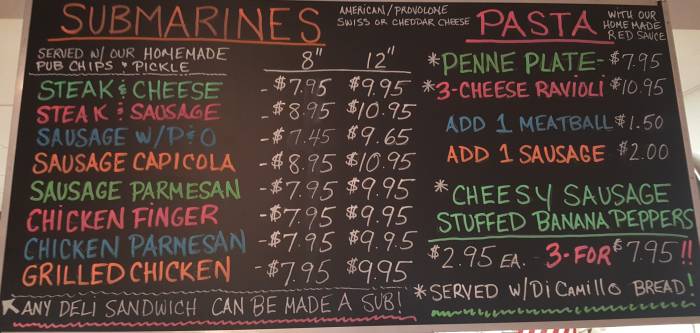 SUBMARINES
AMERICAN/PROVOLOME
SWISS OR CHEDDAR CHEESE
SERVED W/ OUR HOMEMADE
PUB CHIPS & PICKLE
8" 12"
STEAK & CHEESE - $7.95 $9.95
STEAK & SAUSAGE - $8.95 $10.95
SAUSAGE W/P&O - $7.45 $9.65
SAUSAGE CAPICOLA - $8.95 $10.95
SAUSAGE PARMESAN - $7.95 $9.95
CHICKEN FINGER - $7.95 $9.95
CHICKEN PARMESAN - $7.95 $9.9.5
GRILLED CHICKEN - $7.95 $9.95
ANY DELI SANDWICH CAN BE MADE A SUB!
PASTA
WITH OUR
HOME MADE
RED SAUCE
*PENNE PLATE - $7.95
*3-CHEESE RAVIOLI $10.95
ADD 1 MEATBALL $1.50
ADD 1 SAUSAGE $2.00
* CHEESY SAUSAGE
STUFFED BANANA PEPPERS
$2.95 EA. - 3-FOR $7.95!!
*SERVED W/Di CAMillo BREAD!